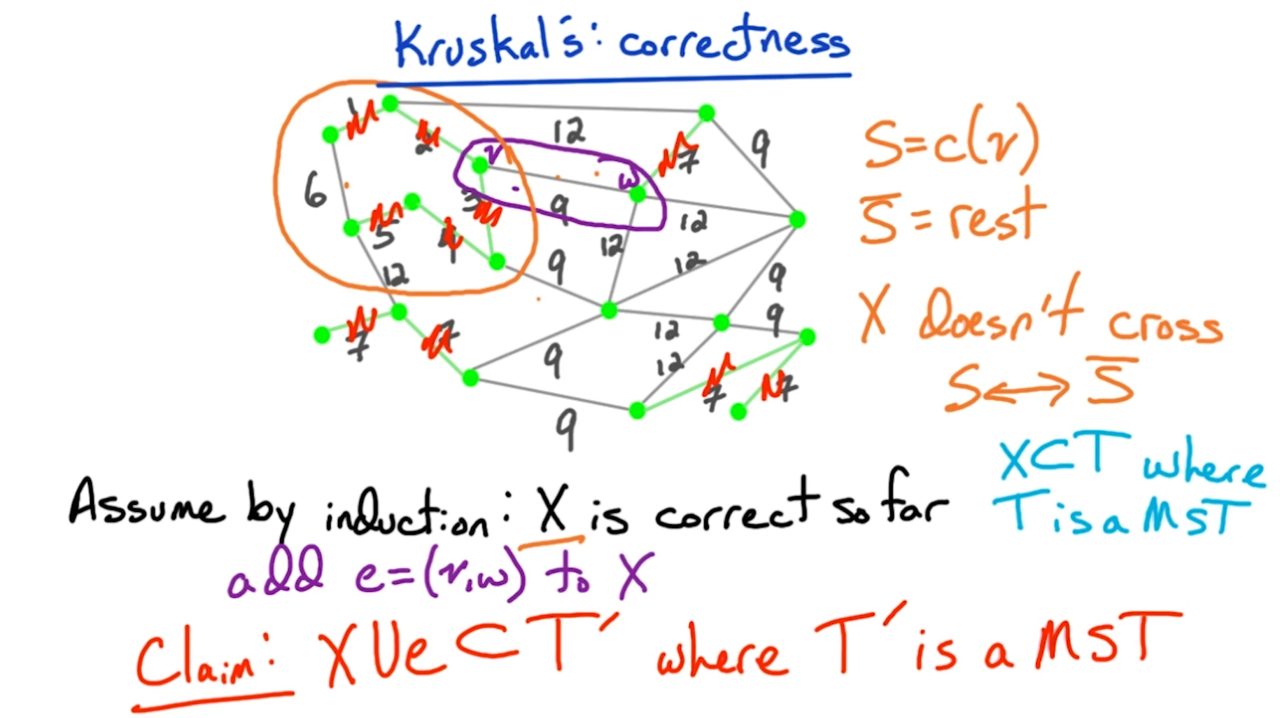 Kruskal's: correctness
1
2
12
7
9
6
v
w
3
9
12
5
4
12
9
12
12
9
7
7
9
12
12
9
7
7
9
S=c(v)
S̅ = rest
X doesn't cross
S↔S̅
X⊂T where
T is a MST
Assume by induction: X is correct so far
add e=(v,w) to X
Claim: X∪e⊂T′ where T′ is a MST